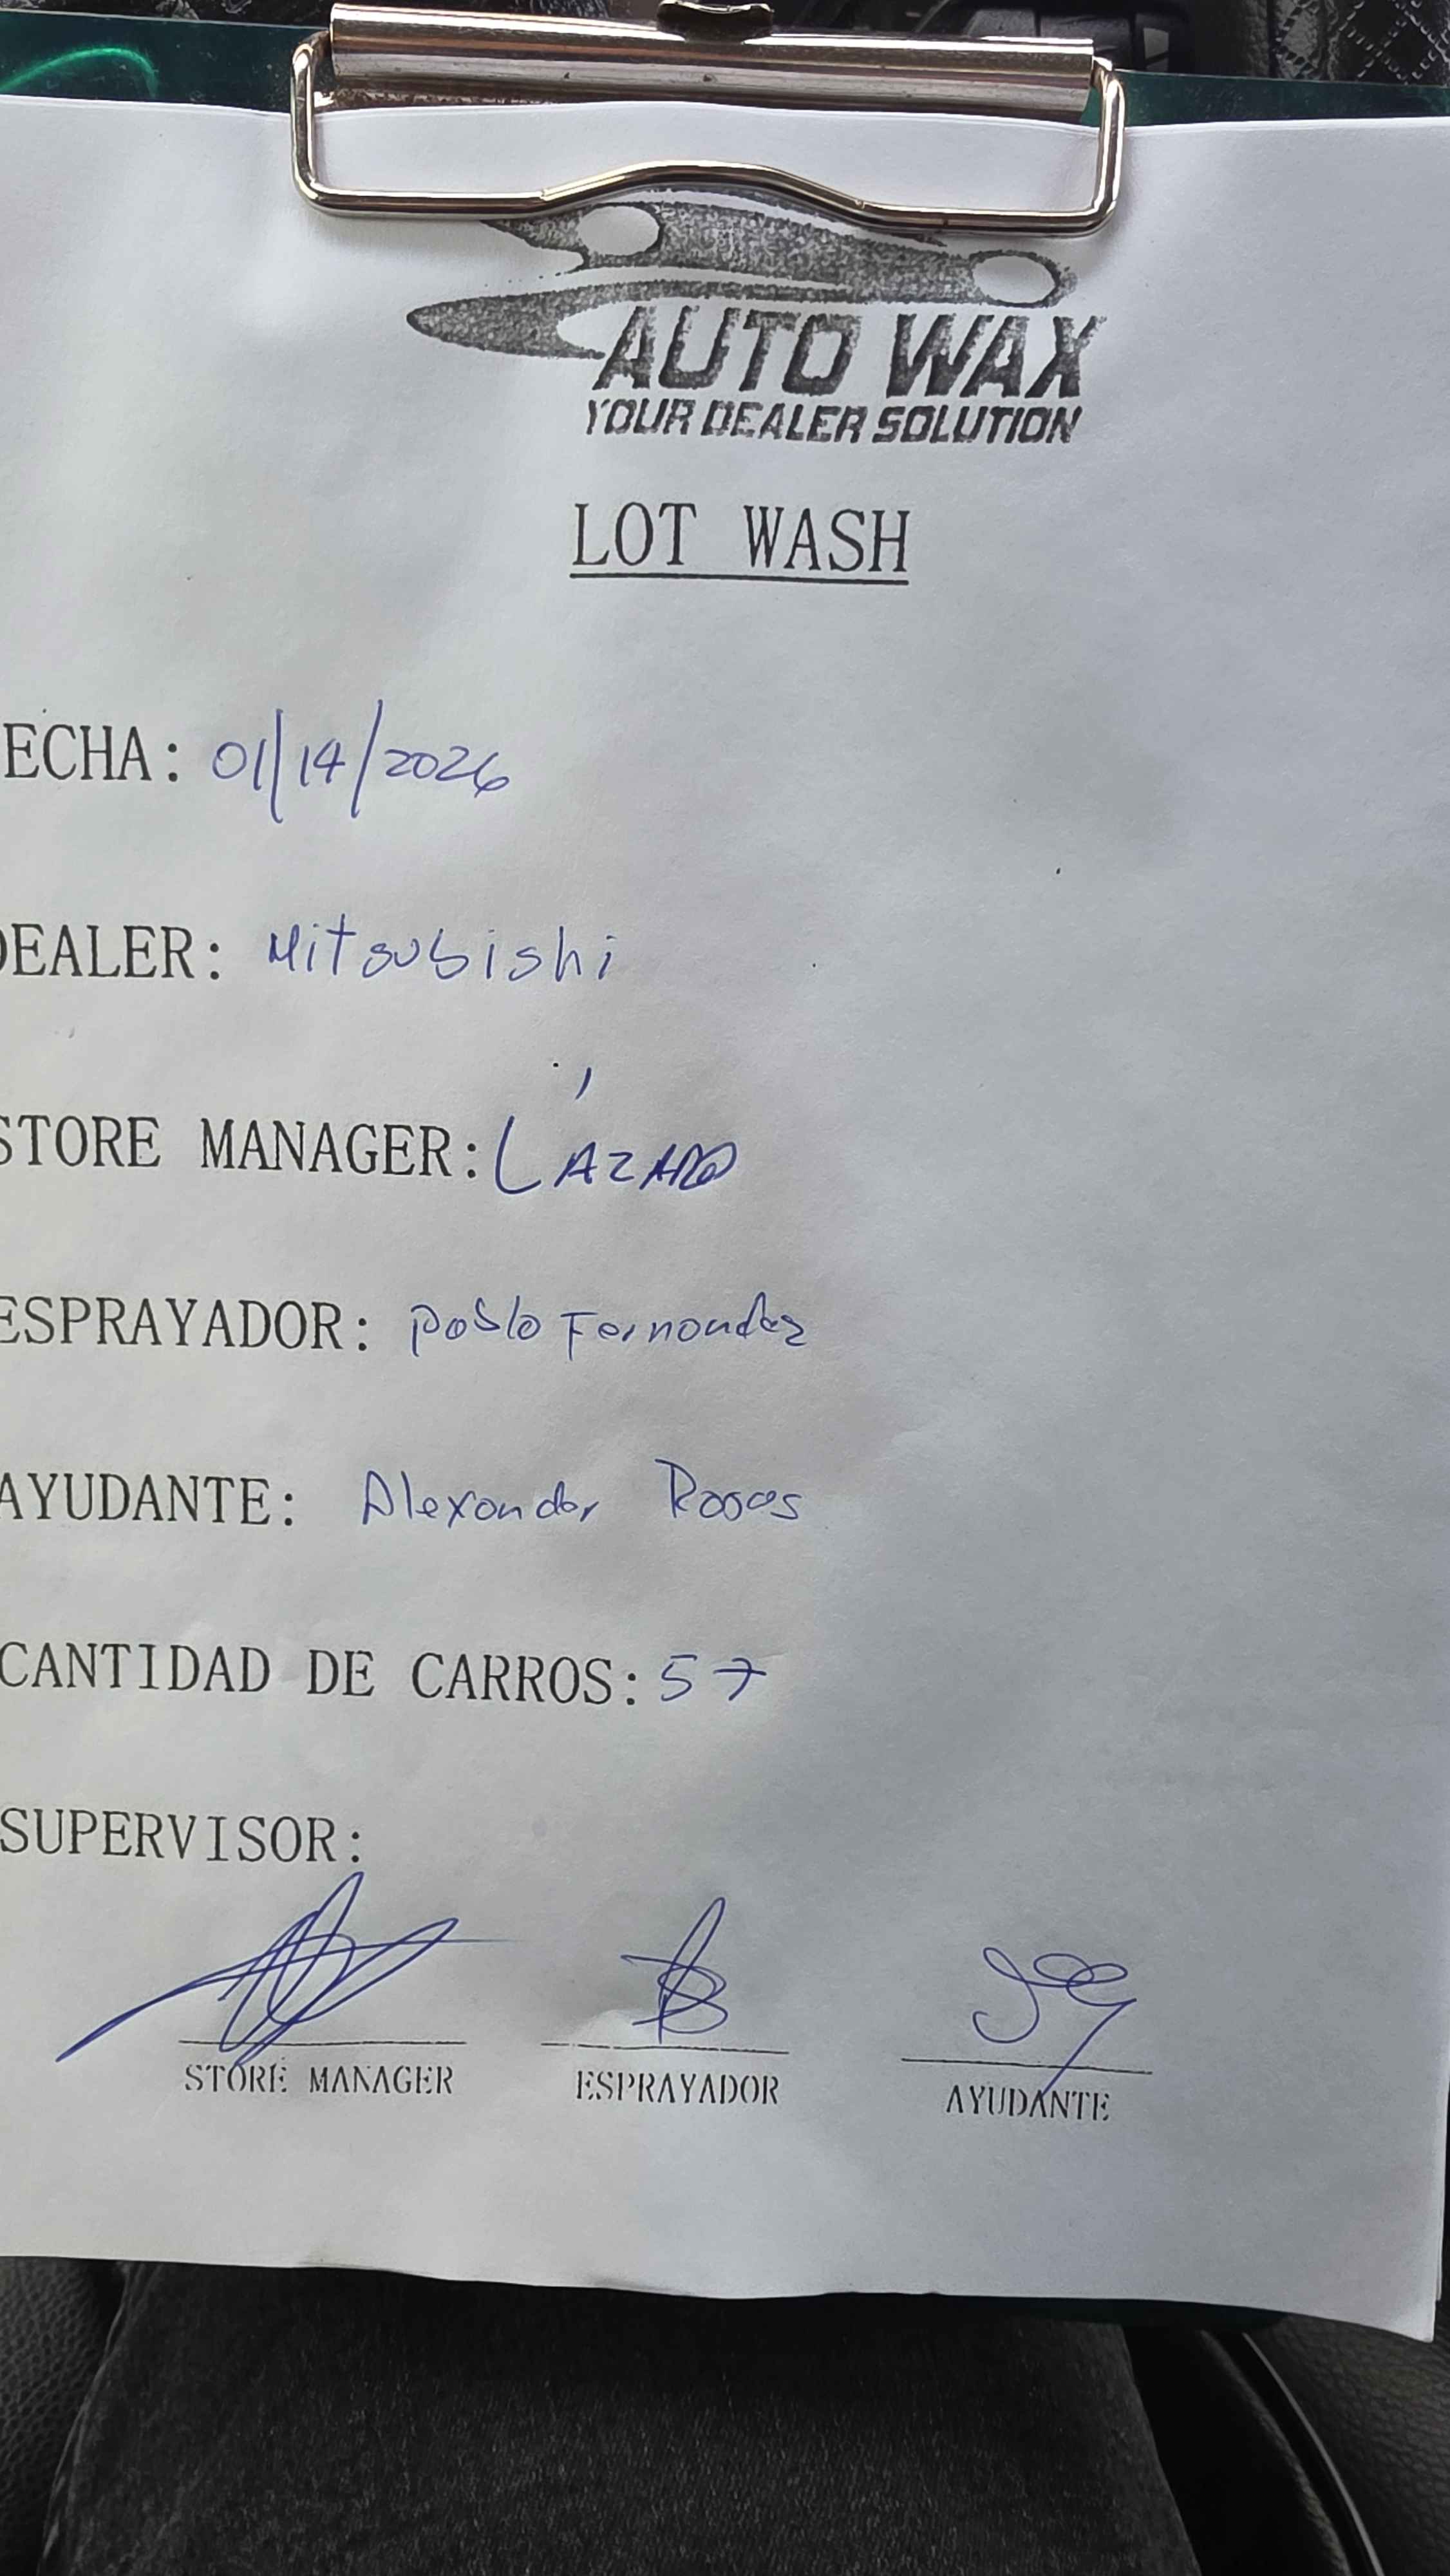 AUTO WAX
YOUR DEALER SOLUTION
LOT WASH
ECHA: 01/14/2026
DEALER: Mitsubishi
STORE MANAGER: LÁZARO
ESPRAYADOR: Pablo Fernandez
AYUDANTE: Alexander Rosas
CANTIDAD DE CARROS: 57
SUPERVISOR:
STORE MANAGER ESPRAYADOR AYUDANTE